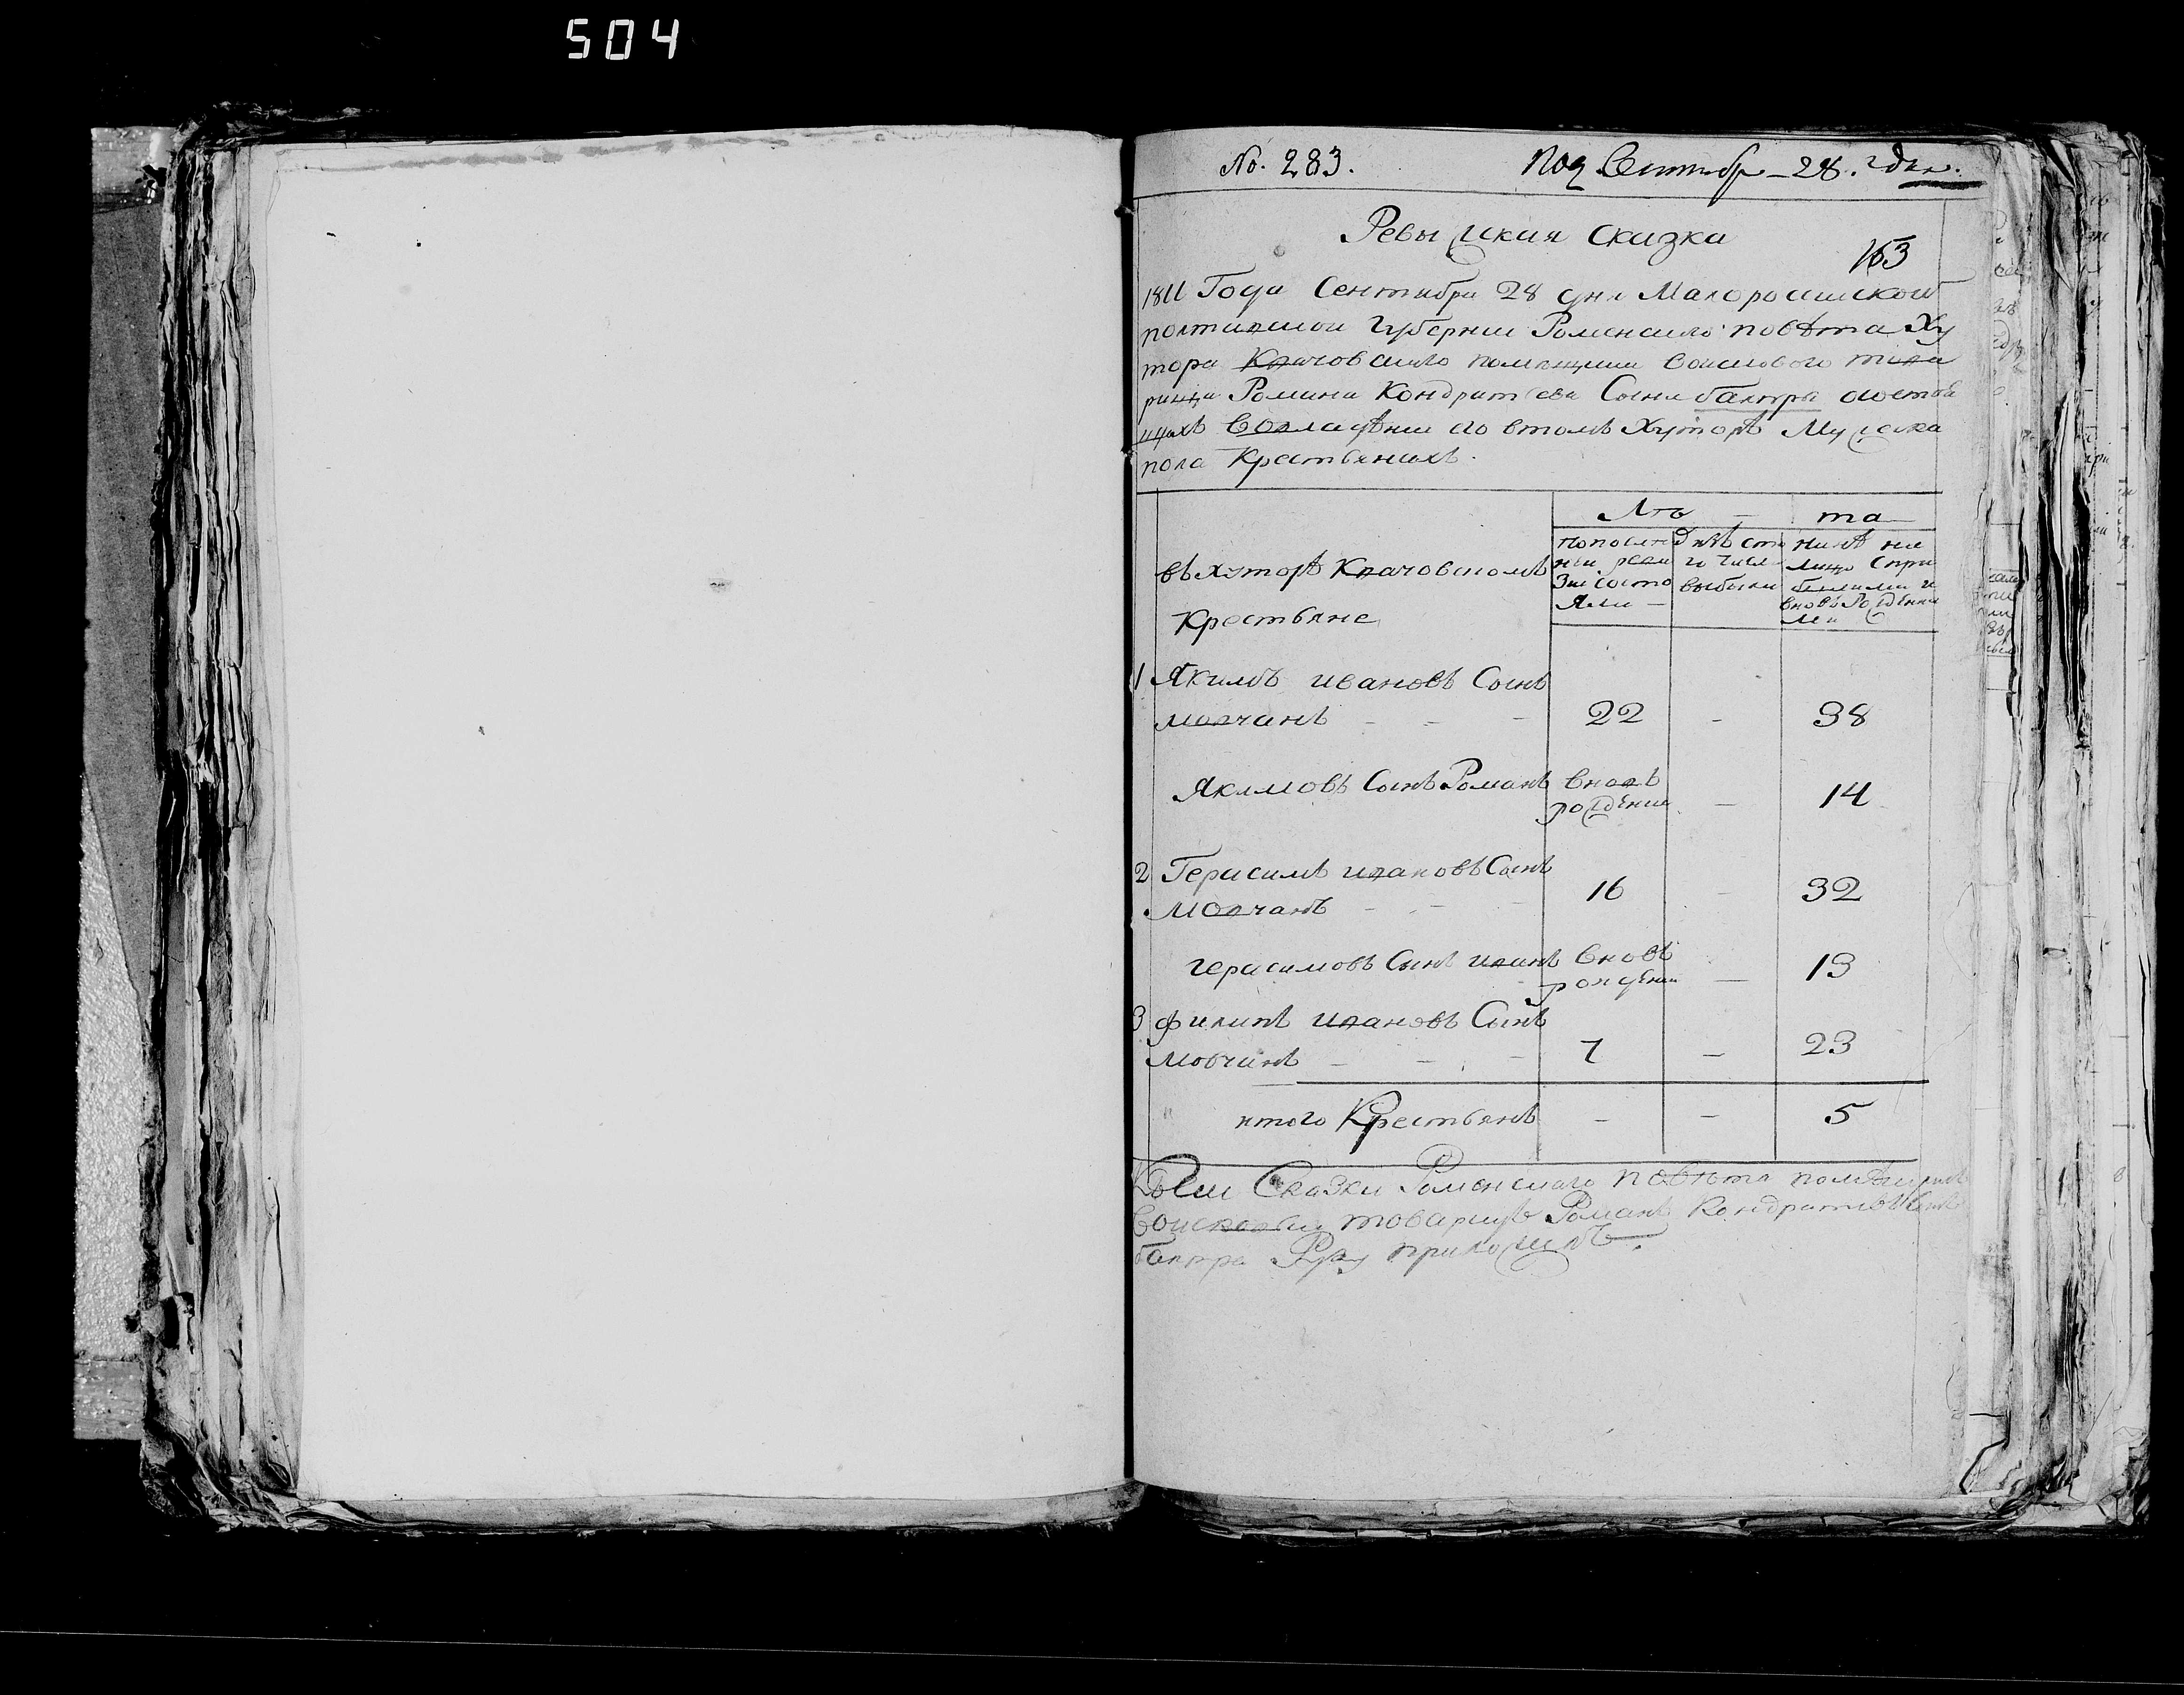 504
No. 283.
Под Сентябр – 28. г дня.
Ревыжская сказка
163
1811 Года Сентября 28 дня Малоросийской
полтавской Губернии Роменского повѣта Ху
тора Клачовского помещика войскового това
рища Романа Кондратьева Сына бактры состоя
щихъ во владѣнии его втомъ Хуторѣ Мужска
пола Крестьянахъ.
Лѣ – та
въ хуторѣ Клачовскомъ
Крестьяне
по послед
ней реви
зии состо
яли –
изъ сто
го числ
выбыли
Нынѣ на
лицо спри
былыми и
вновь Рожденны
ми
1 Якимъ ивановъ Сынъ
молчанъ – – – 22 – 38
Якимовъ Сынъ Романъ вновь
рожденни – 14
2 Герасимъ ивановъ Сынъ
Молчанъ – – – 16 – 32
герасимовъ Сынъ иванъ вновь
рожденни – 13
3 филипъ ивановъ Сынъ
мовчанъ – – – 7 – 23
итого Крестьянъ – – 5
Ксеи Сказки Роменскаго повѣта помѣщикъ
войсковый товарищъ Романъ Кондратьевъ Сынъ
бактра Руку приложилъ.